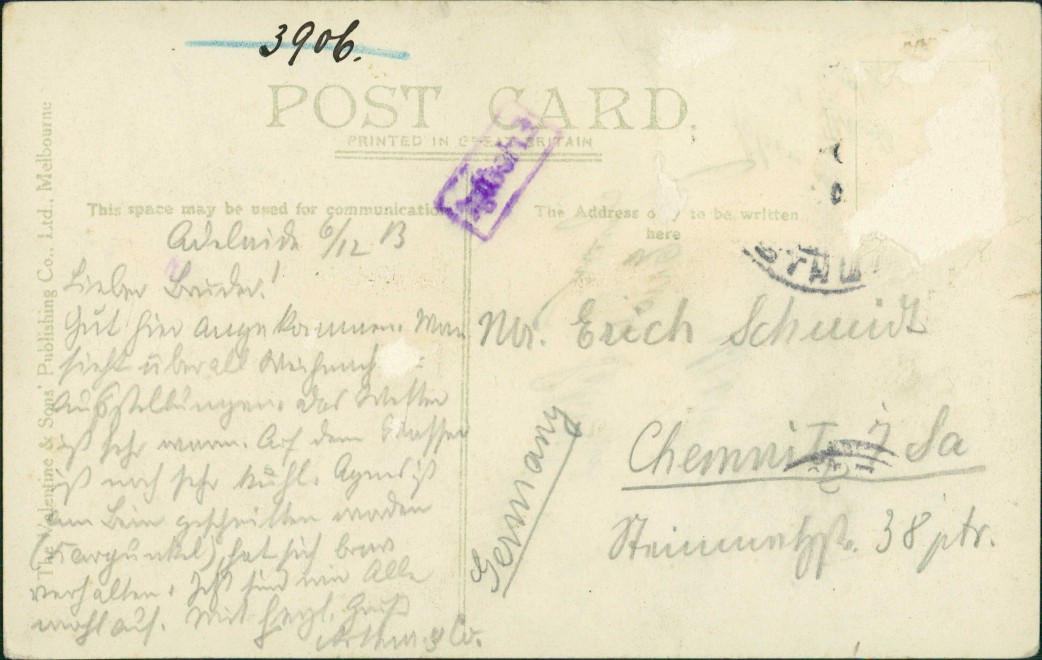 3906.
POST CARD.
PRINTED IN GREAT BRITAIN
This space may be used for communication
The Address only to be written
here
The Valentine & Sons' Publishing Co., Ltd., Melbourne
Adelaide 6/12 13
Lieber Bruder!
Gut hier angekommen. Man
sieht überall Weihnachts-
Ausstellungen. Das Wetter
ist sehr warm. Auf dem Wasser
ist noch sehr kühl. Agnes ist
am Bein geschnitten worden
(Kargunkel), hat sich brav
verhalten. Jetzt sind wir Alle
wohl auf. Mit herzl. Gruß
Arthur & Co.
Mr. Erich Schmidt
Chemnitz i Sa
Steinmetzstr. 38 ptr.
Germany